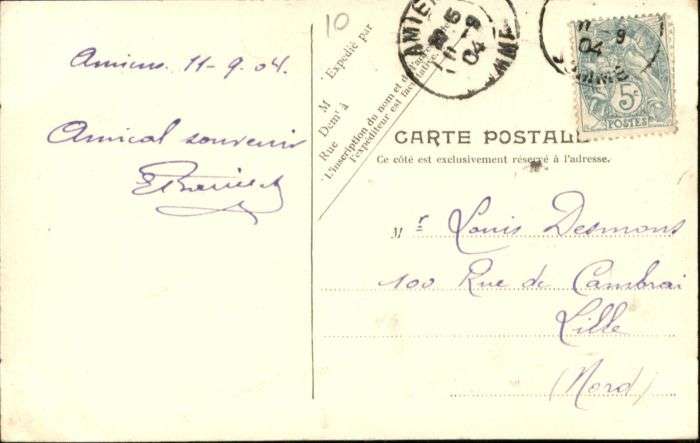 Amiens 11-9.04.
Amical souvenir
10
M Expédié par
Demt à
Rue
L'inscription du nom et de l'adresse de
l'expéditeur est facultative.
AMIENS
11 -9
04
SOMME
11 -9
04
SOMME
5c
POSTES
CARTE POSTALE
Ce côté est exclusivement réservé à l'adresse.
Mr Louis Desmons
100 Rue de Cambrai
Lille
(Nord)